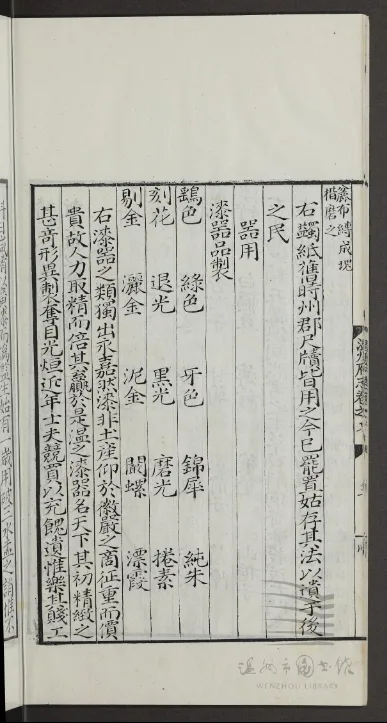 麄布縛成塊
揩磨之
右蠲紙舊時州郡尺牘皆用之今已罷置姑存其法以遺于後
之民
器用
漆器品製
鷄色 綠色 牙色 錦犀 純朱
刻花 退光 黑光 磨光 捲素
剔金 灑金 泥金 鬬螺 漂霞
右漆器之類獨出永嘉然漆非土産仰於徽嚴之商征重而價
貴故人力取精而倍其贏於是溫之漆器名天下其初精緻之
甚奇形異製奪目光烜近年士夫競買以充餽遺惟樂其賤工
溫州府志卷之
温州市圖书馆
WENZHOU LIBRARY